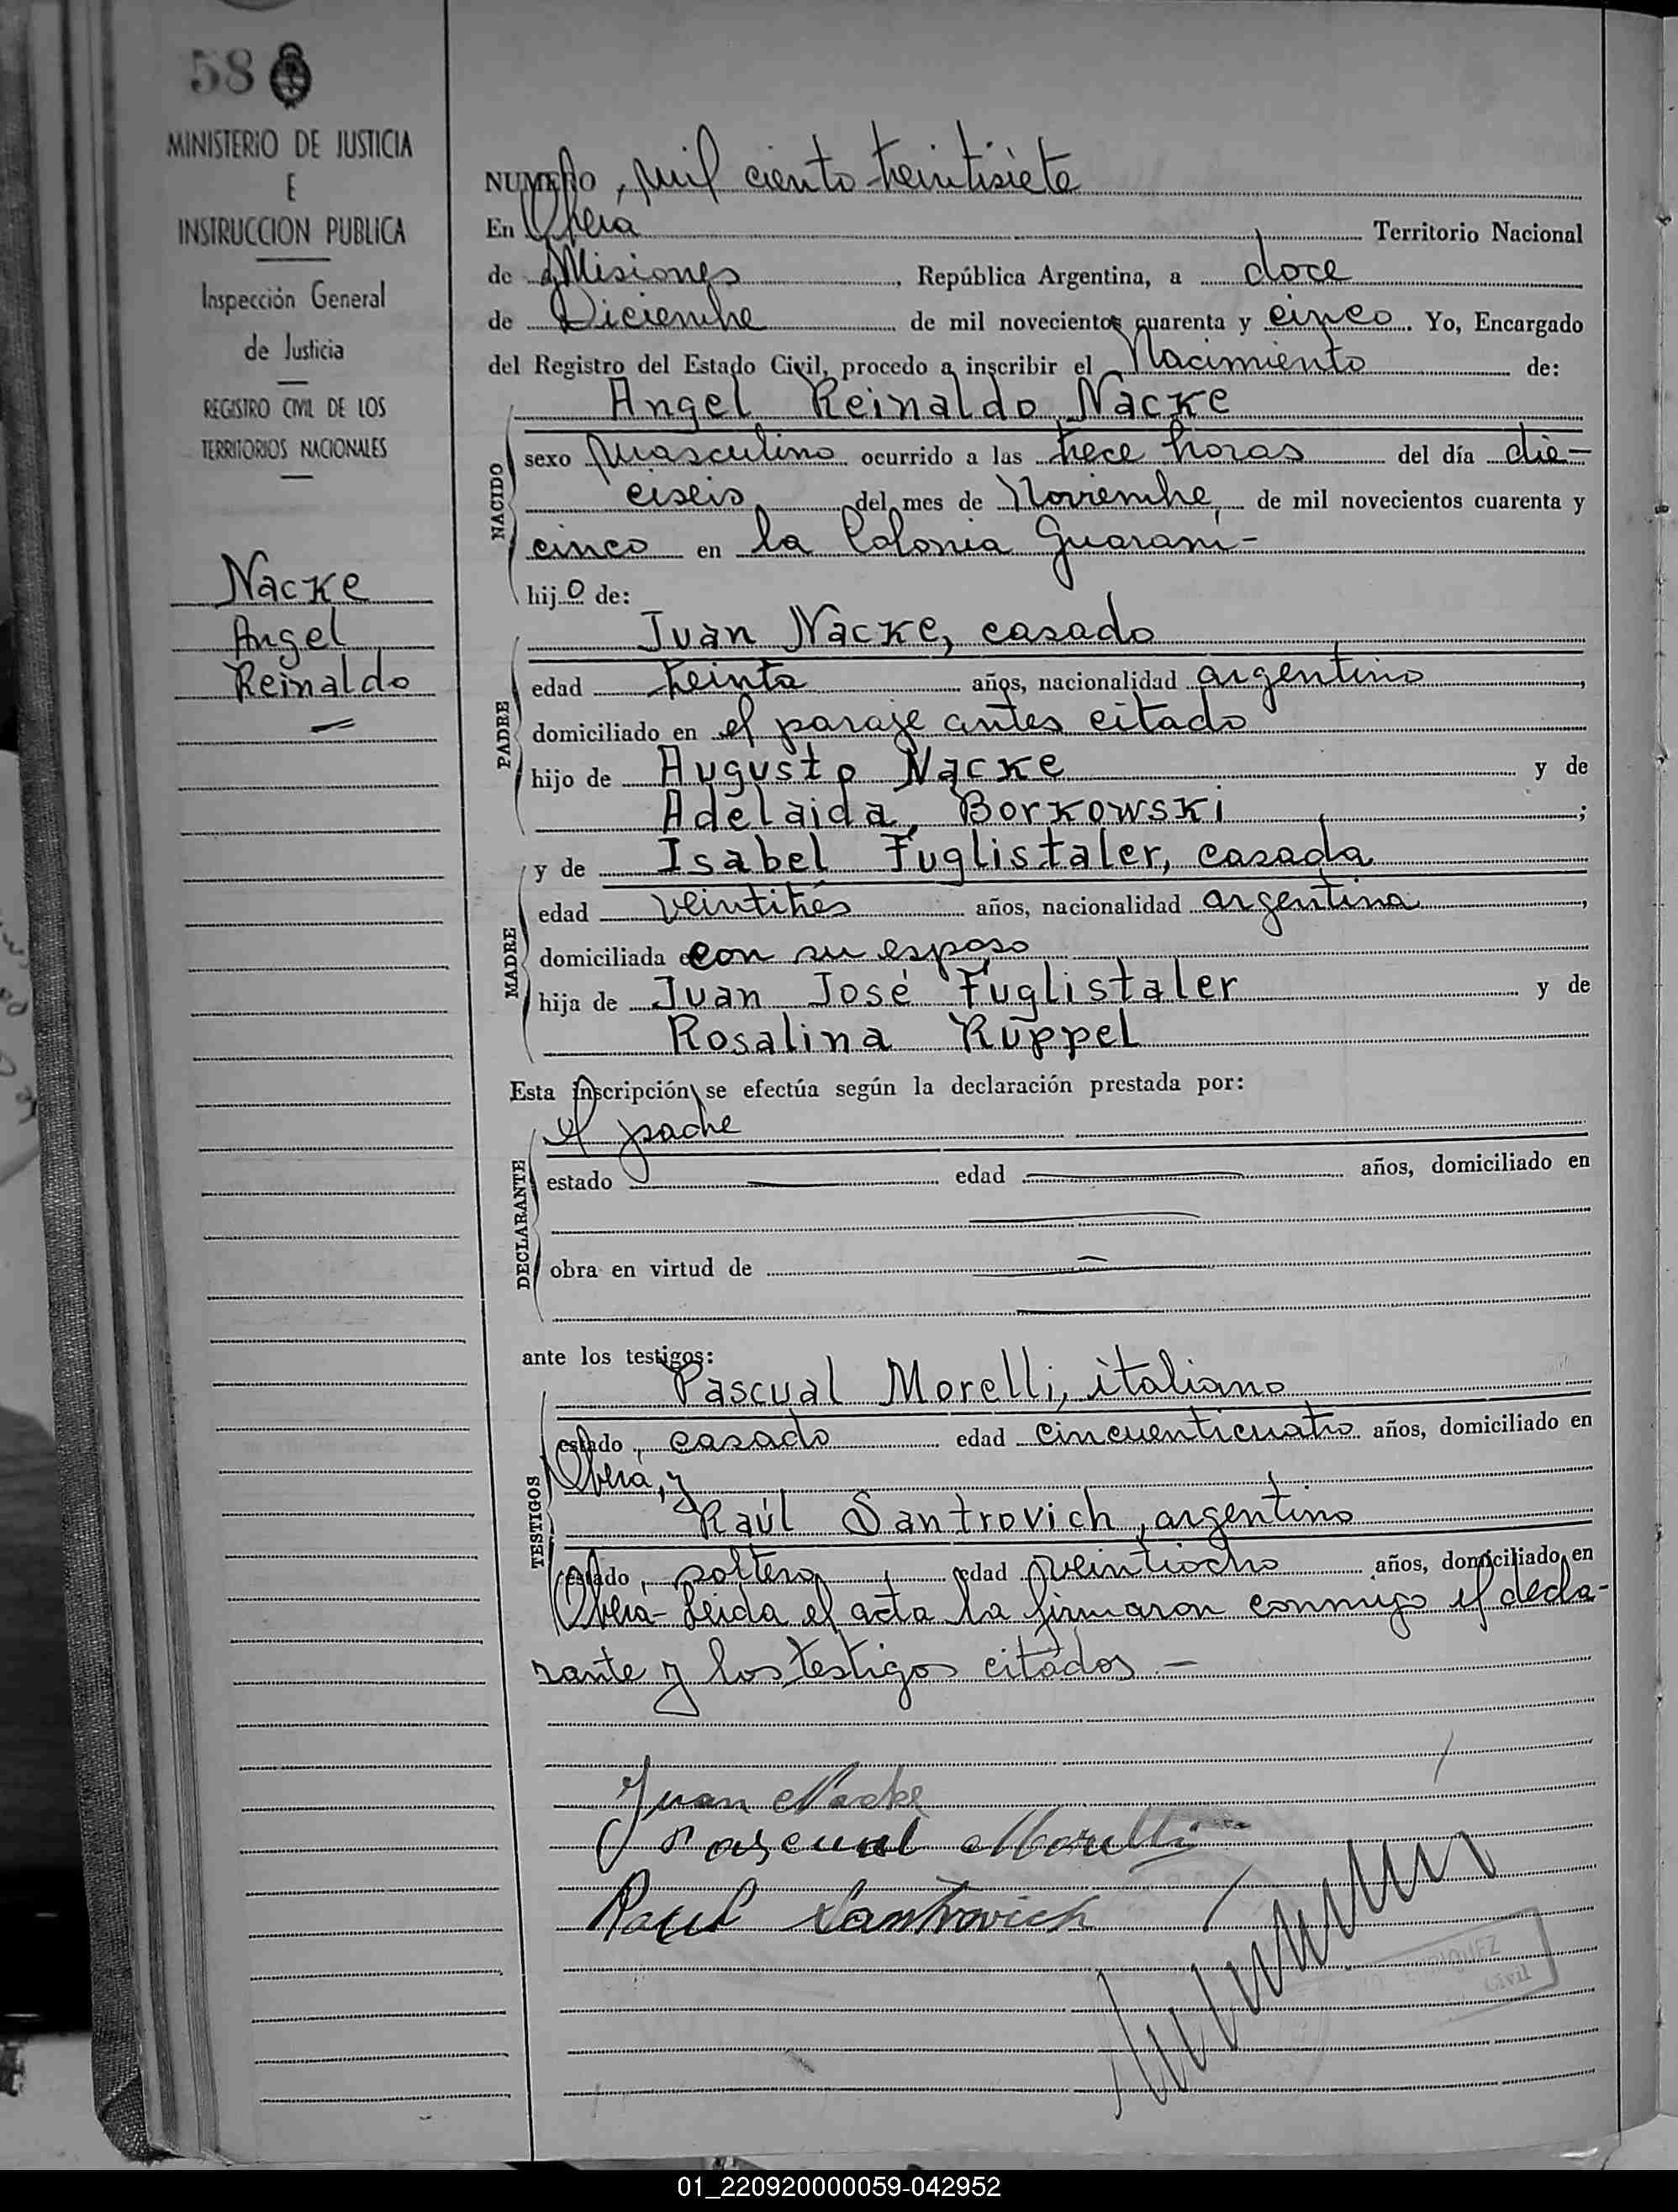 58
MINISTERIO DE JUSTICIA
E
INSTRUCCION PUBLICA
Inspección General
de Justicia
REGISTRO CIVIL DE LOS
TERRITORIOS NACIONALES
Nacke
Angel
Reinaldo
NUMERO, mil ciento treintisiete
En Oberá Territorio Nacional
de Misiones, República Argentina, a doce
de Diciembre de mil novecientos cuarenta y cinco. Yo, Encargado
del Registro del Estado Civil, procedo a inscribir el Nacimiento de:
Angel Reinaldo Nacke
NACIDO
sexo masculino ocurrido a las trece horas del día die-
ciseis del mes de Noviembre, de mil novecientos cuarenta y
cinco en la Colonia Guaraní-
hijo de:
Juan Nacke, casado
PADRE
edad treinta años, nacionalidad argentino,
domiciliado en el paraje antes citado
hijo de Augusto Nacke y de
Adelaida Borkowski;
y de Isabel Fuglistaler, casada
MADRE
edad veintitrés años, nacionalidad argentina,
domiciliada con su esposo
hija de Juan José Fuglistaler y de
Rosalina Rüppel
Esta inscripción se efectúa según la declaración prestada por:
el padre
DECLARANTE
estado edad años, domiciliado en
obra en virtud de
ante los testigos:
Pascual Morelli, italiano
TESTIGOS
estado, casado edad cincuenticuatro años, domiciliado en
Oberá, y
Raúl Santrovich, argentino
estado, soltero, edad veintiocho años, domiciliado en
Oberá- Leida el acta la firmaron conmigo el decla-
rante y los testigos citados.-
Juan Nacke
Pascual Morelli
Raul Santrovich
Civil
01_220920000059-042952